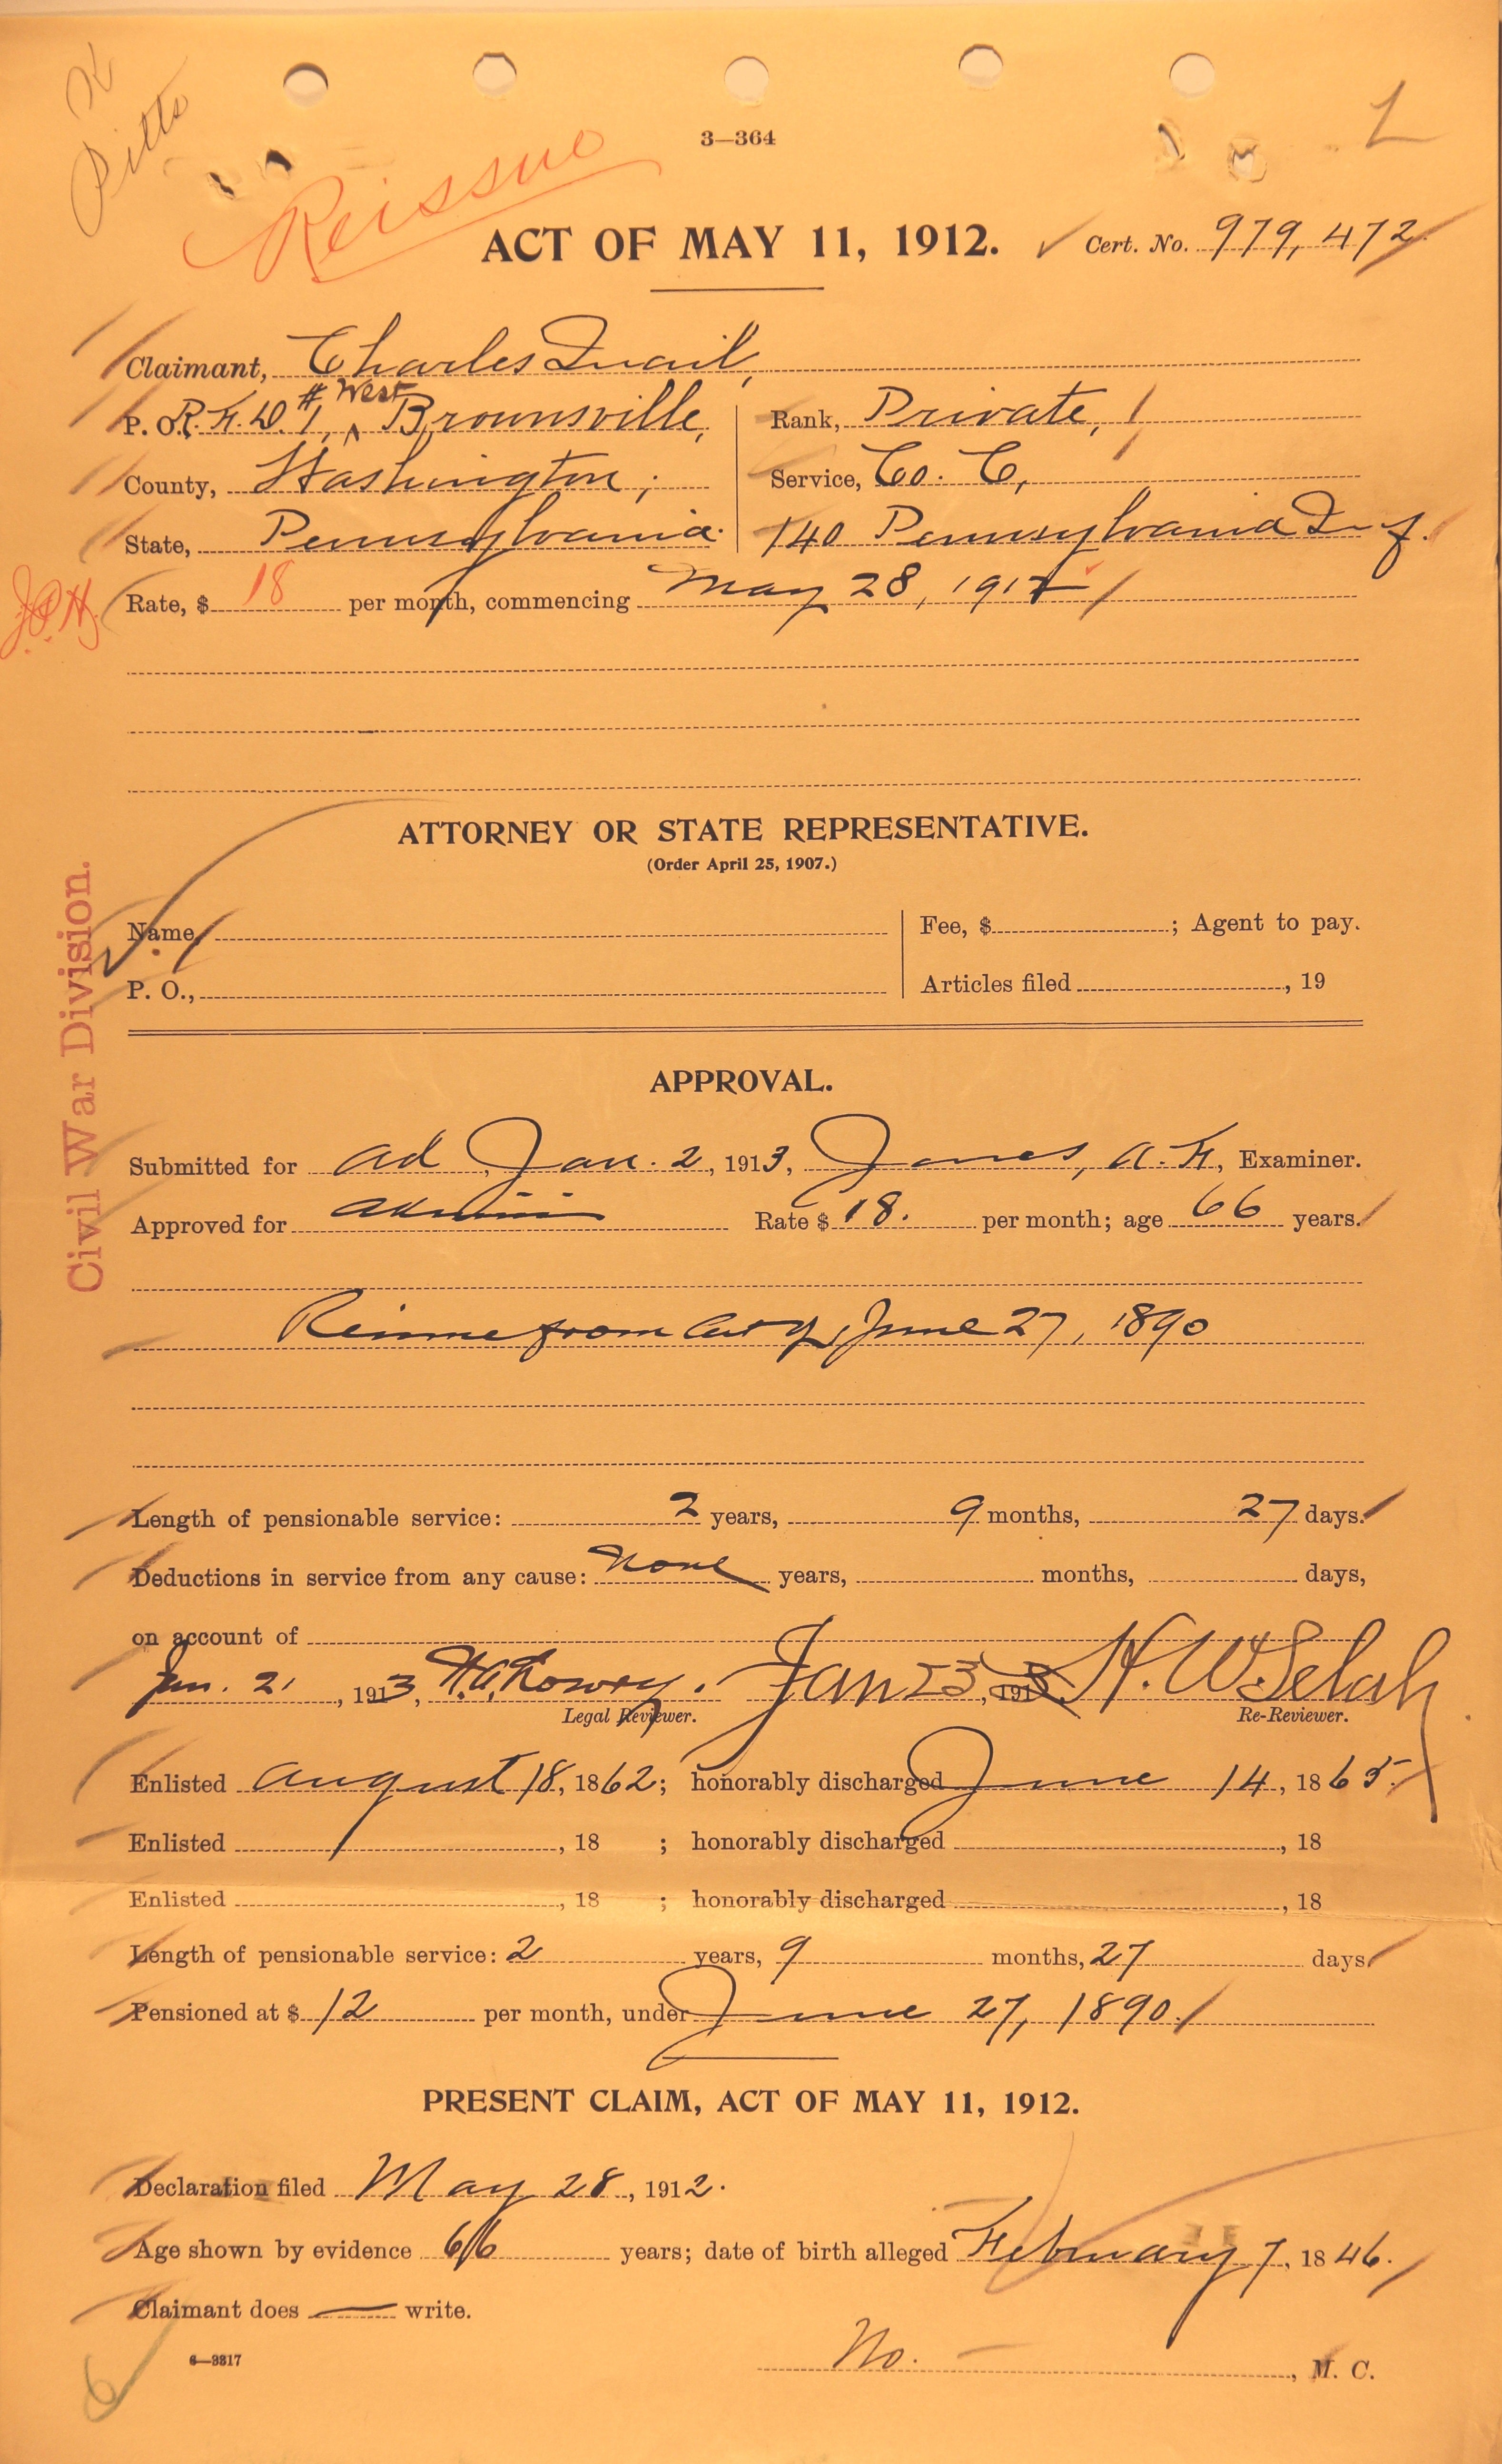 K
Pitts
L
3—364
Reissue
ACT OF MAY 11, 1912.
Cert. No. 979,472
Claimant, Charles Quail,
P. O. R.F.D. #1, West Brownsville,
Rank, Private,
County, Washington;
Service, Co. C,
State, Pennsylvania.
140 Pennsylvania Inf.
Rate, $ 18 per month, commencing May 28, 1912
ATTORNEY OR STATE REPRESENTATIVE.
(Order April 25, 1907.)
Name,
Fee, $ ; Agent to pay.
P. O.,
Articles filed , 19
Civil War Division.
APPROVAL.
Submitted for ad, Jan. 2, 1913, Jones, A. F., Examiner.
Approved for admin Rate $ 18. per month; age 66 years.
Reissue from Act of June 27, 1890
Length of pensionable service: 2 years, 9 months, 27 days.
Deductions in service from any cause: None years, months, days,
on account of
Jan. 21, 1913, Legal Reviewer.
Jan 23, 1913. H. W. Selah Re-Reviewer.
Enlisted August 18, 1862; honorably discharged June 14, 1865.
Enlisted , 18 ; honorably discharged , 18
Enlisted , 18 ; honorably discharged , 18
Length of pensionable service: 2 years, 9 months, 27 days
Pensioned at $ 12 per month, under June 27, 1890.
PRESENT CLAIM, ACT OF MAY 11, 1912.
Declaration filed May 28, 1912.
Age shown by evidence 66 years; date of birth alleged February 7, 1846.
Claimant does — write.
6—3317
No. — , M. C.
6